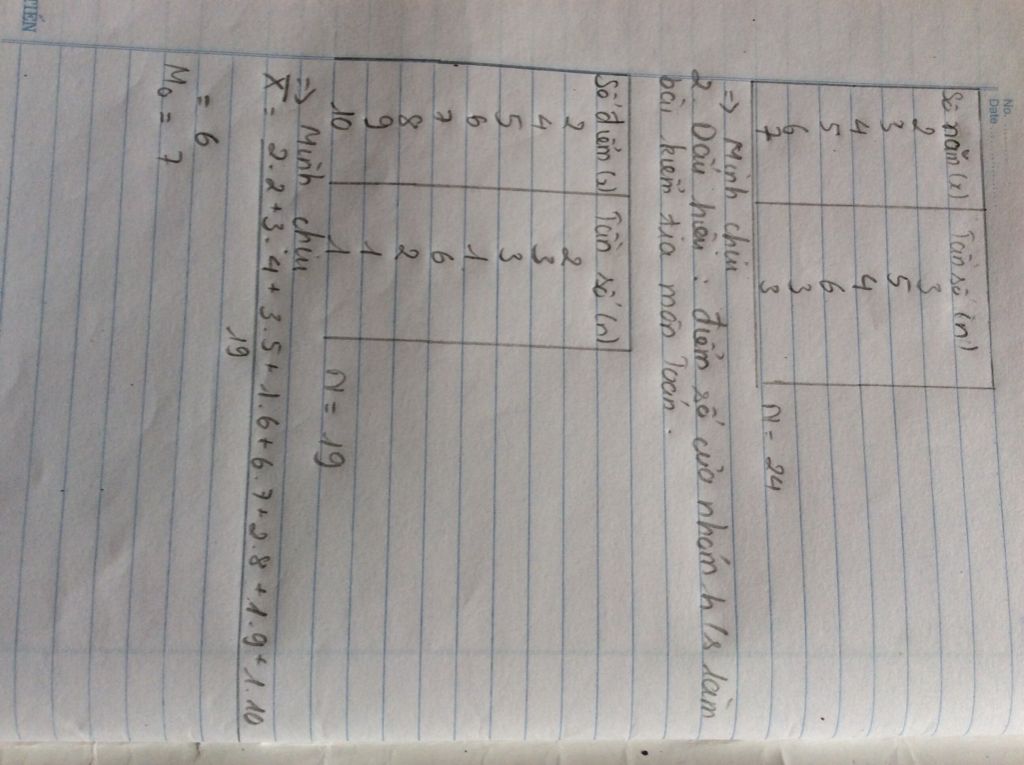 No.
Date
Số năm (x) Tần số (n)
2 3
3 5
4 4
5 6
6 3
7 3 N = 24
=> Minh chứng
2. Dấu hiệu : điểm số của nhóm hs làm
bài kiểm tra môn Toán.
Số điểm (x) Tần số (n)
2 2
4 3
5 3
6 1
7 6
8 2
9 1
10 1 N = 19
=> Minh chứng
X̄ = 2.2 + 3.4 + 3.5 + 1.6 + 6.7 + 2.8 + 1.9 + 1.10
19
= 6
M₀ = 7
TIẾN